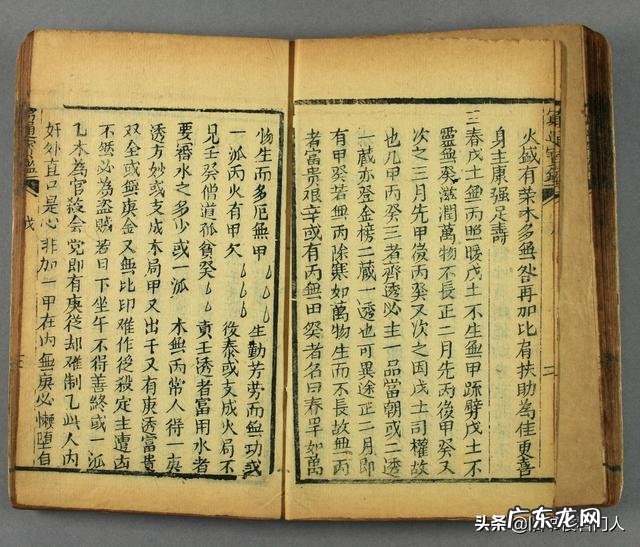 火盛有榮木多無咎再加比肩扶助為佳更喜
身主康強足壽
三春戊土無丙照暖戊土不生無甲疏劈戊土不
靈無癸滋潤萬物不長正二月先丙後甲癸又
次之三月先甲後丙癸又次之因戊土司權故
也凡甲丙癸三者齊透必主一品當朝或二透
一藏亦登金榜二藏一透也可異途正二月即
有甲癸若無丙除寒如萬物生而不長故無丙
者富貴艱辛或有丙無田癸者名曰春旱如萬
物生而多厄無甲 生勤劳而無功或
一派丙火有甲欠 後泰或支成火局不
見壬癸僧道孤貧癸 貢壬透者富用水者
要審水之多少或一派 木無丙常人得一庚
透方妙或支成木局甲又出干又有庚透富貴
双全或無庚金又無比印難作從殺定主遭凶
不然必為盜賊若日下坐午不得善終或一派
乙木為官殺会党即有庚從却難制乙此人内
奸外直口是心非加一甲在内無庚必懒堕自
窮通寶鑑
戊
头条
广东龙网